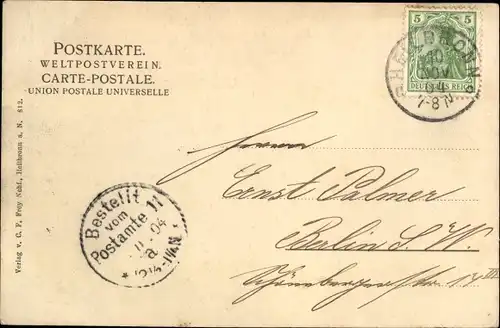 POSTKARTE.
WELTPOSTVEREIN.
CARTE-POSTALE.
UNION POSTALE UNIVERSELLE
5 5
DEUTSCHES REICH
HEILBRONN
10
NOV
04
7-8 N
Verlag v. C. F. Frey Nchf., Heilbronn a. N. 812.
Herrn
Ernst Palmer
Berlin S. W.
Schönebergerstr. 17 III
Bestellt
vom
Postamte 11
11 04